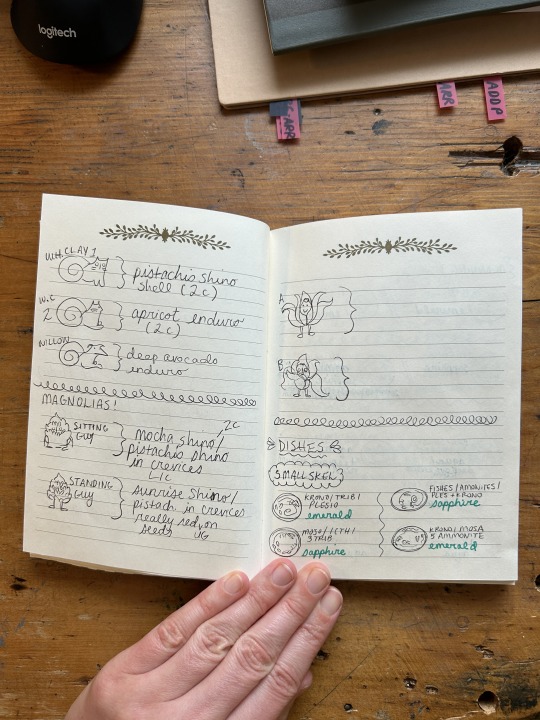 logitech
ARR
ARR
ADD P
WH. CLAY 1
pistachio shino
shell (2c)
W.C
2
apricot enduro
(2c)
WILLON
deep avocado
enduro
MAGNOLIAS!
SITTING
GUY
2C
mocha shino/
pistachio shino
in crevices
L1C
STANDING
GUY
sunrise shino/
pistach. in crevices
really red on
seeds UG
A
B
DISHES
SMALL SKEL
KRONO/TRIB/
PLESIO
emerald
MOSO/ICTH/
3TRIB
sapphire
FISHES/AMONITES/
PLES+KRONO
sapphire
KRONO/MOSA
5 AMMONITE
emerald